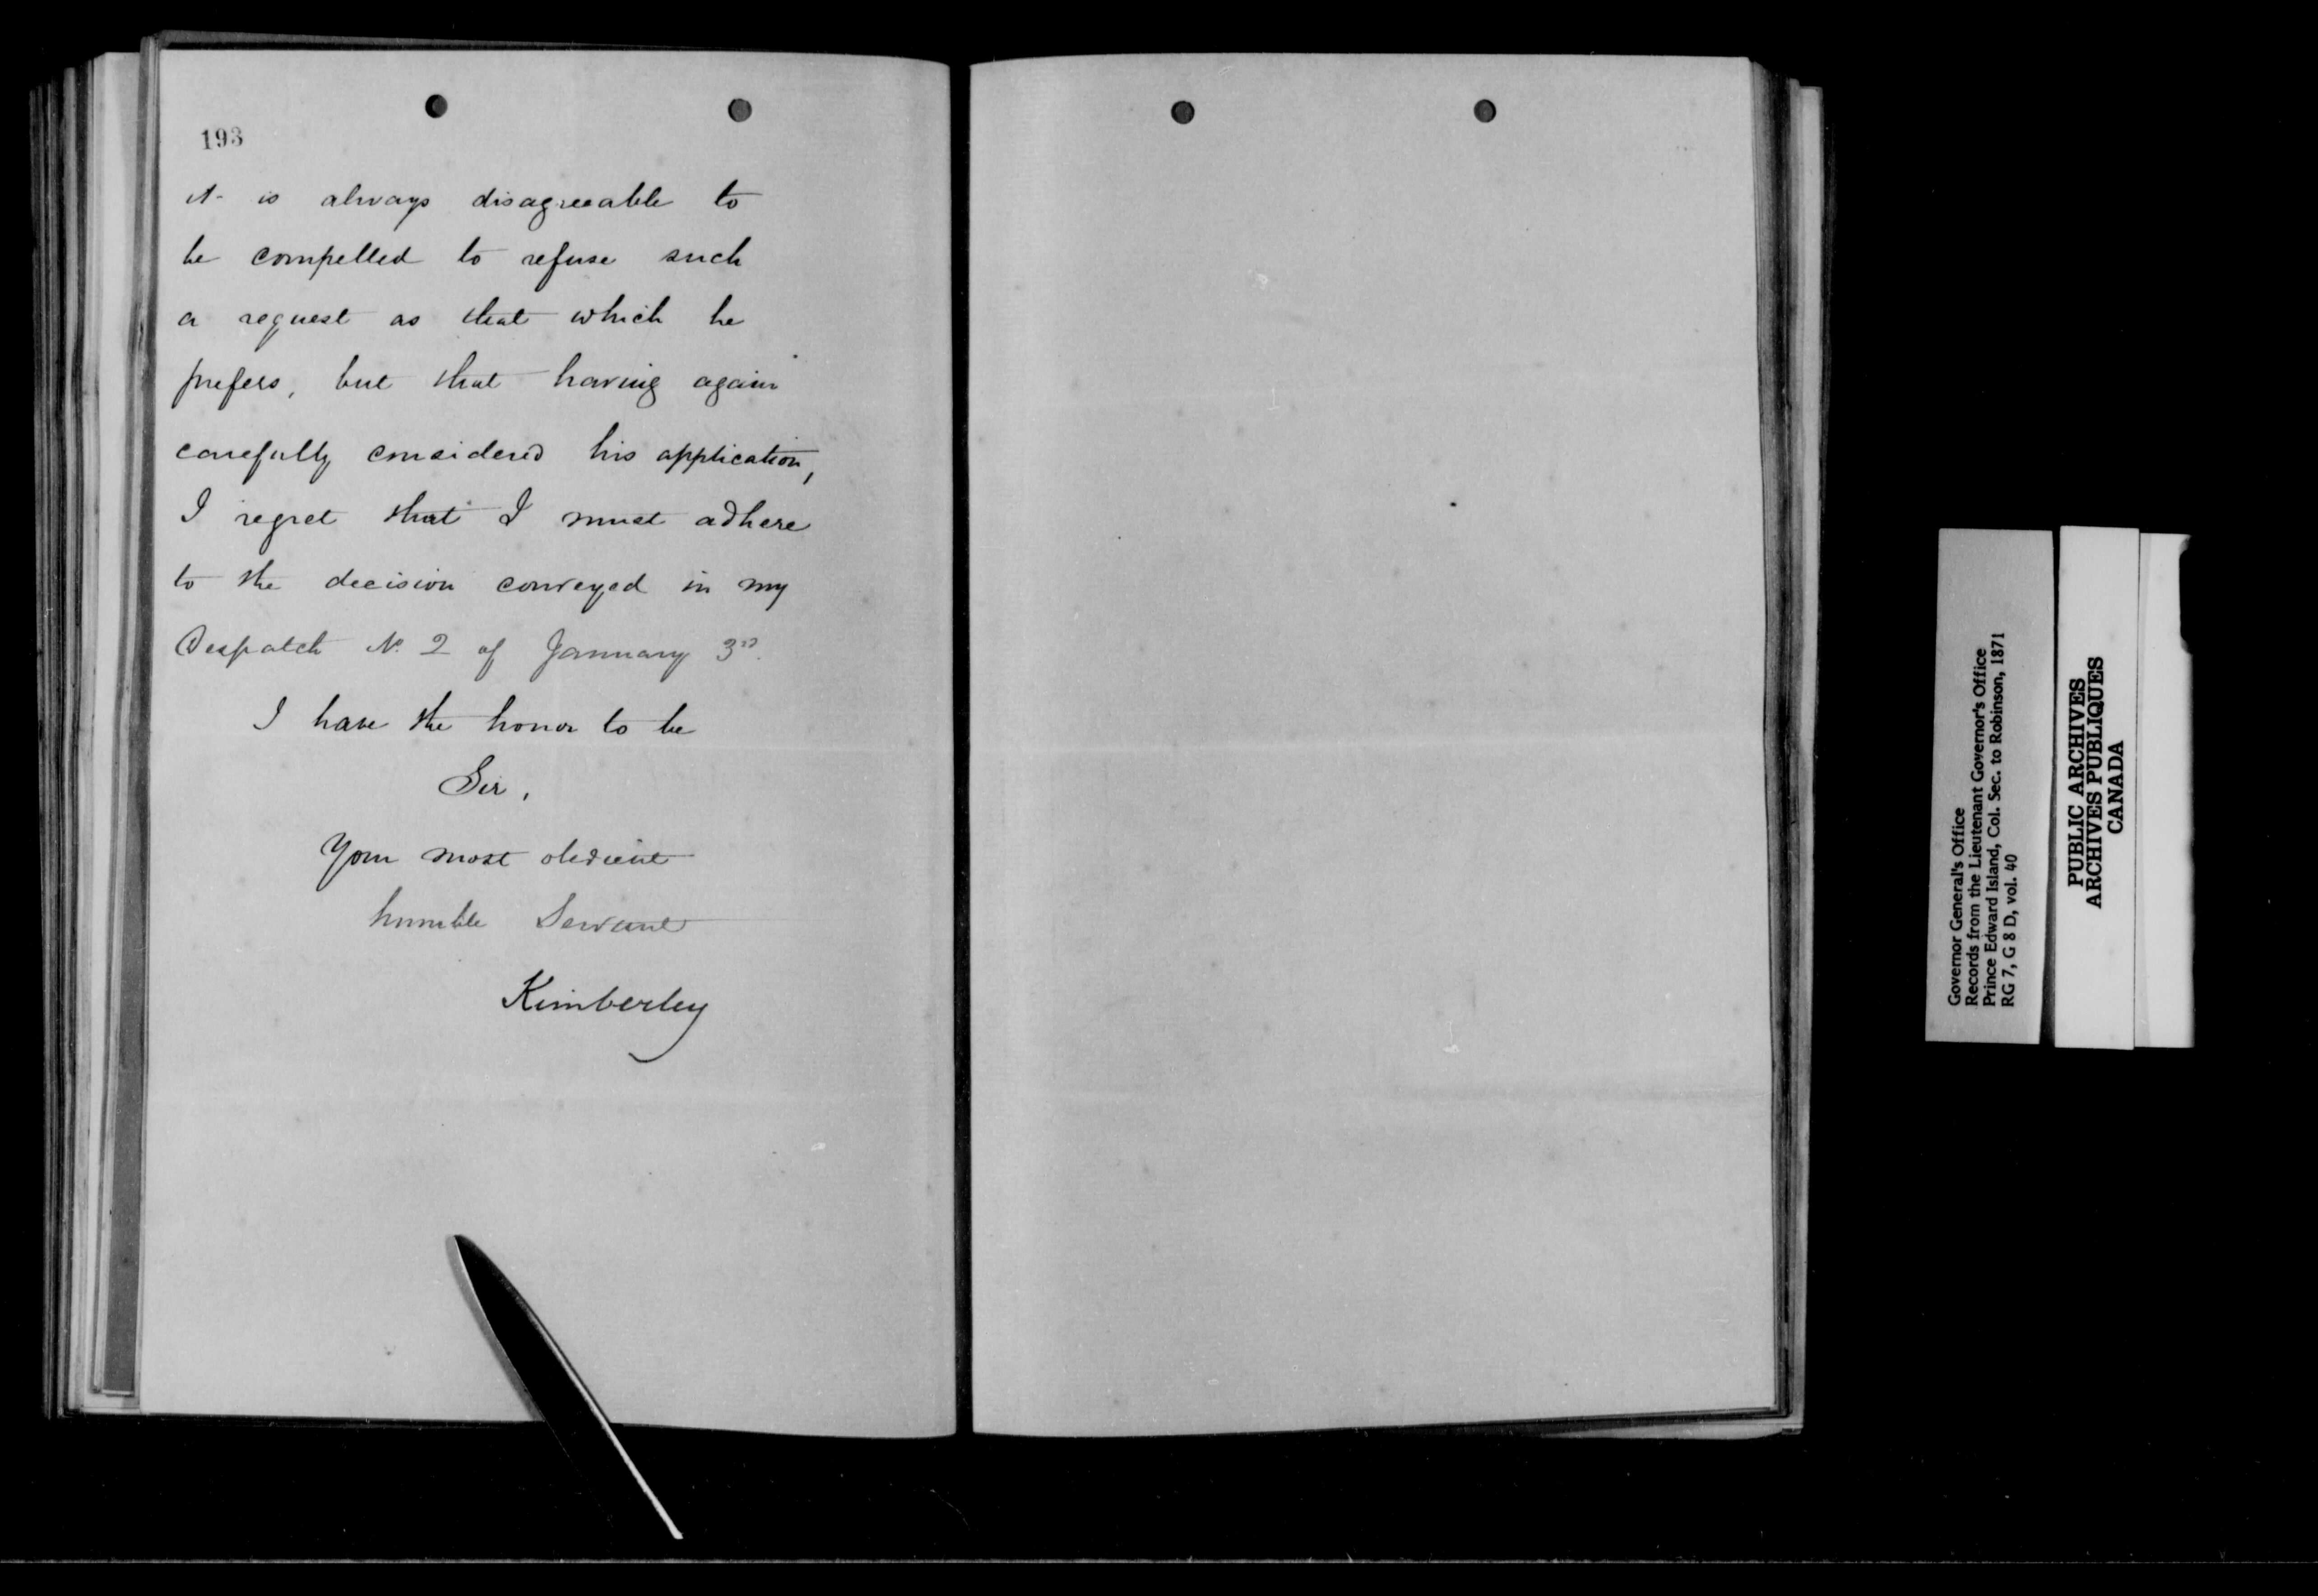 193
it is always disagreeable to
be compelled to refuse such
a request as that which he
prefers, but that having again
carefully considered his application,
I regret that I must adhere
to the decision conveyed in my
Despatch No. 2 of January 3rd.
I have the honor to be
Sir,
Your most obedient
humble Servant
Kimberley
Governor General's Office
Records from the Lieutenant Governor's Office
Prince Edward Island, Col. Sec. to Robinson, 1871
RG 7, G 8 D, vol. 40
PUBLIC ARCHIVES
ARCHIVES PUBLIQUES
CANADA